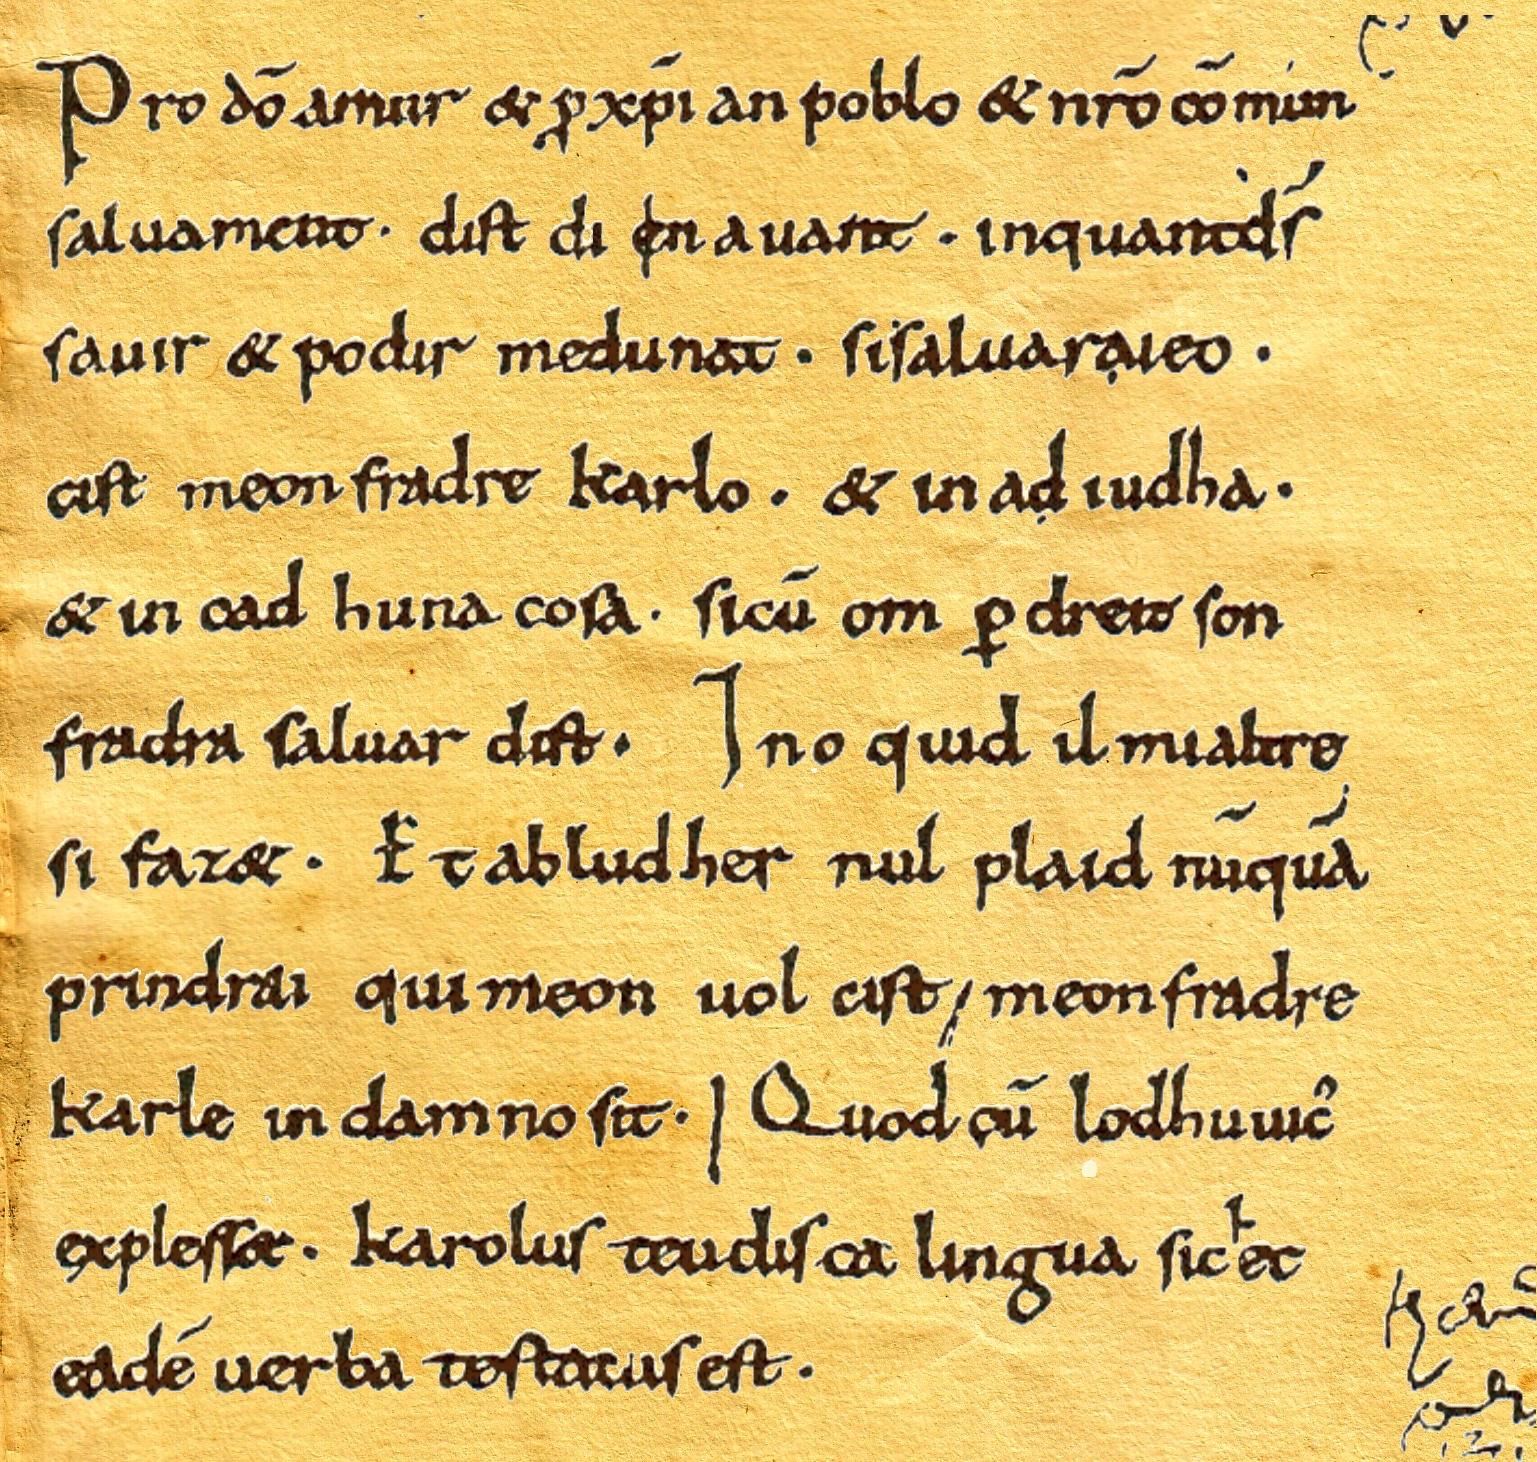 Pro dō amur & ꝑ xp̄ian poblo & nr̄o cōmun
saluament· dist di en auant· inquantd̄s
sauir & podir medunat· sisaluaraieo·
cist meon fradre karlo· & in ad iudha·
& in cad huna cosa· sicū om ꝑ dreit son
fradra saluar dist· Ino quid il mialtre
si fazæ&· Et abludher nul plaid nūquā
prindrai qui meon uol cist / meonfradre
karle in damno sit· | Quod cū lodhuuic̄
explesset· karolus teudisca lingua sic ec
eadē uerba testatus est·